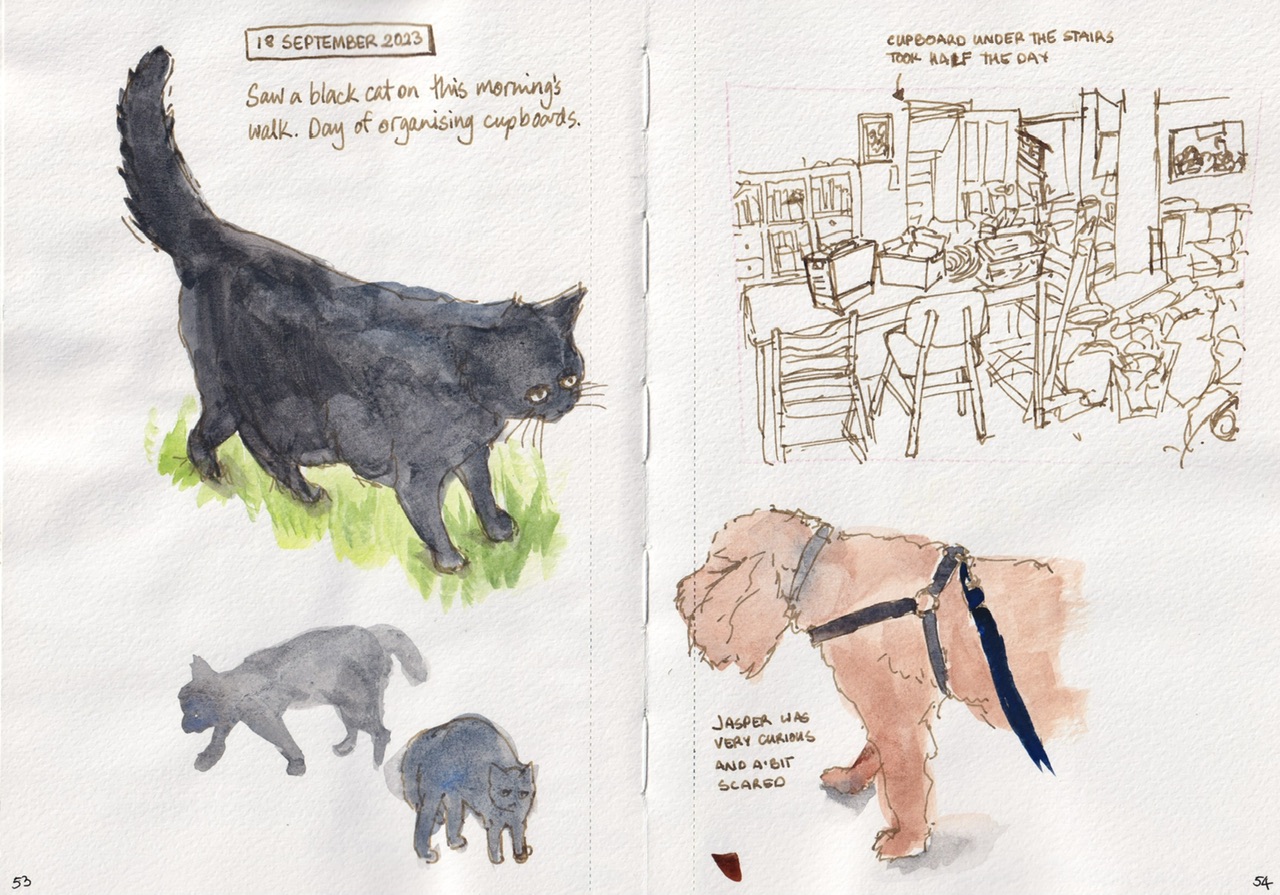 18 SEPTEMBER 2023
Saw a black cat on this morning's
walk. Day of organising cupboards.
53
CUPBOARD UNDER THE STAIRS
TOOK HALF THE DAY
JASPER WAS
VERY CURIOUS
AND A BIT
SCARED
54